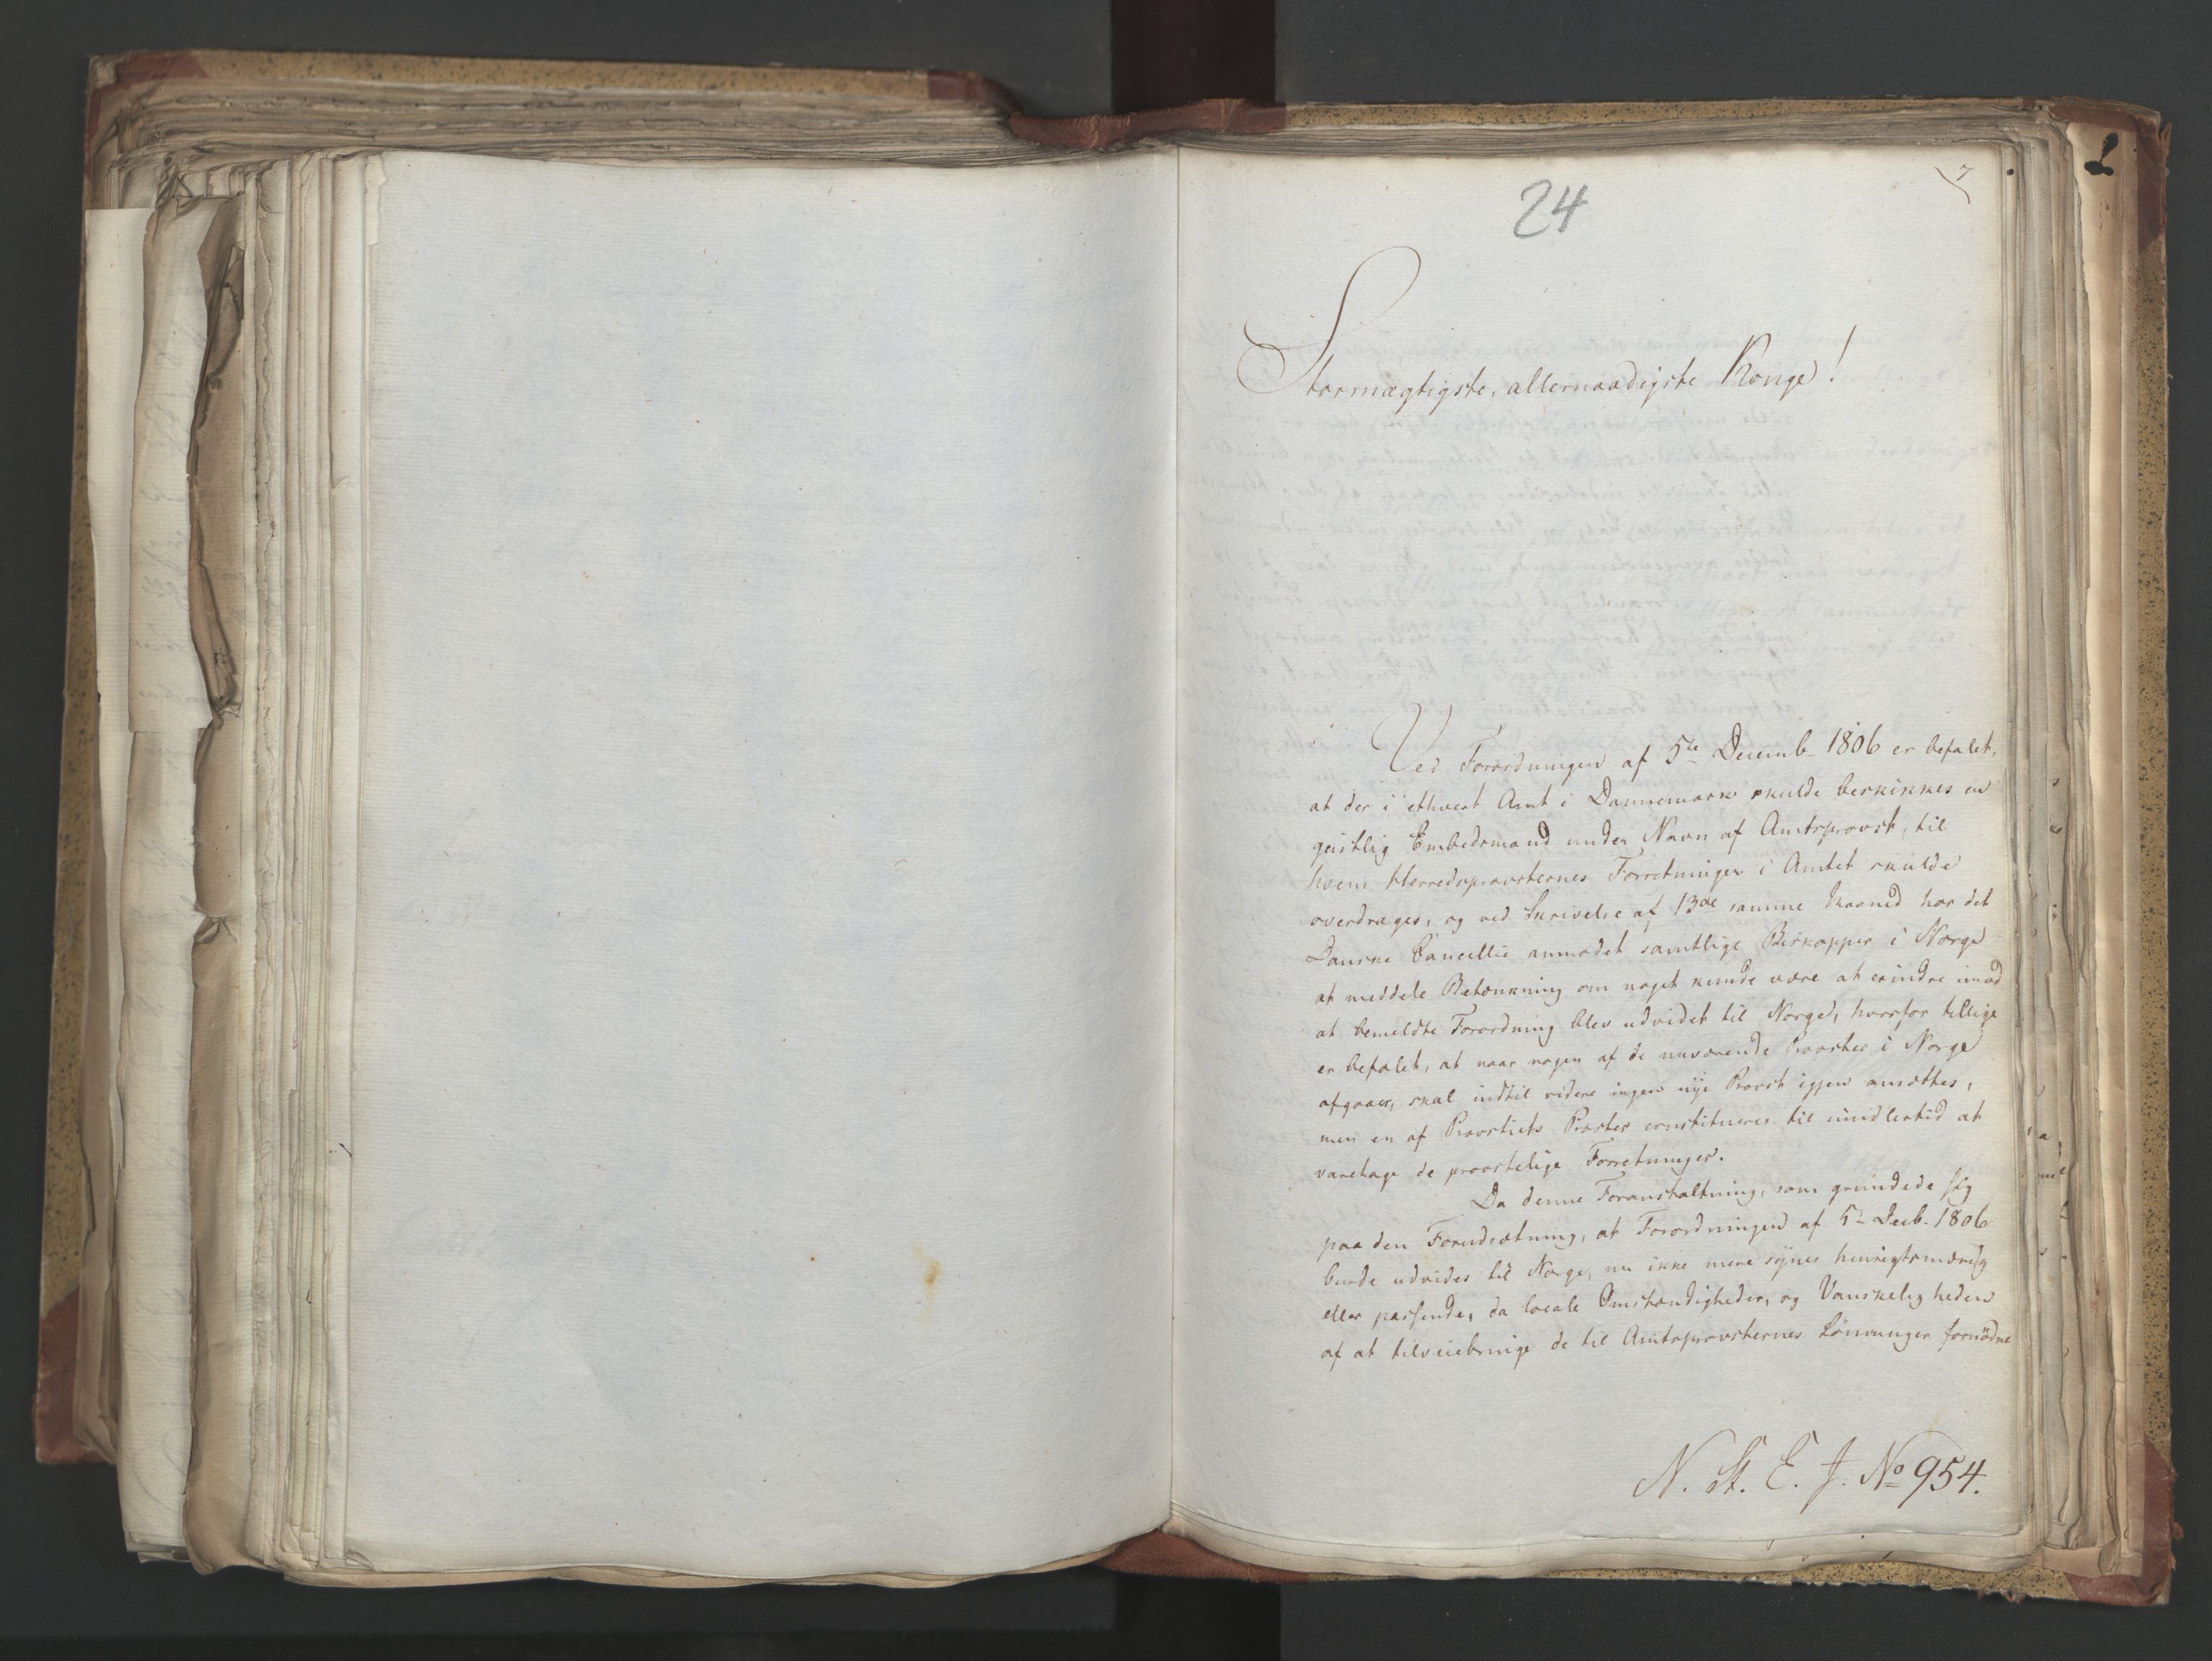 24
7
Stormægtigste, allernaadigste Konge!
Ved Forordningen af 5te Decemb. 1806 er befalet,
at der i ethvert Amt i Dannemark skulde beskikkes en
geistlig Embedsmand under Navn af Amtsprovst, til
hvem Herredsprovsternes Forretninger i Amtet skulde
overdrages, og ved Skrivelse af 13de samme Maaned har det
Danske Cancellie anmodet samtlige Biskopper i Norge
at meddele Betænkning om noget kunde være at erindre imod
at bemeldte Forordning blev udvidet til Norge, hvorfor tillige
er befalet, at naar nogen af de nuværende Provster i Norge
afgaaer, skal indtil videre ingen nye Provst igjen ansættes,
men en af Provstiets Præster constitueres til imidlertid at
varetage de provstelige Forretninger.
Da denne Foranstaltning, som grundede sig
paa den Forudsætning, at Forordningen af 5te Decb. 1806
burde udvides til Norge, nu ikke mere synes hensigtsmæssig
eller passende, da locale Omstændigheder, og Vanskeligheden
af at tilveiebringe de til Amtsprovsternes Lønninger fornødne
N. St. E. J. No 954.